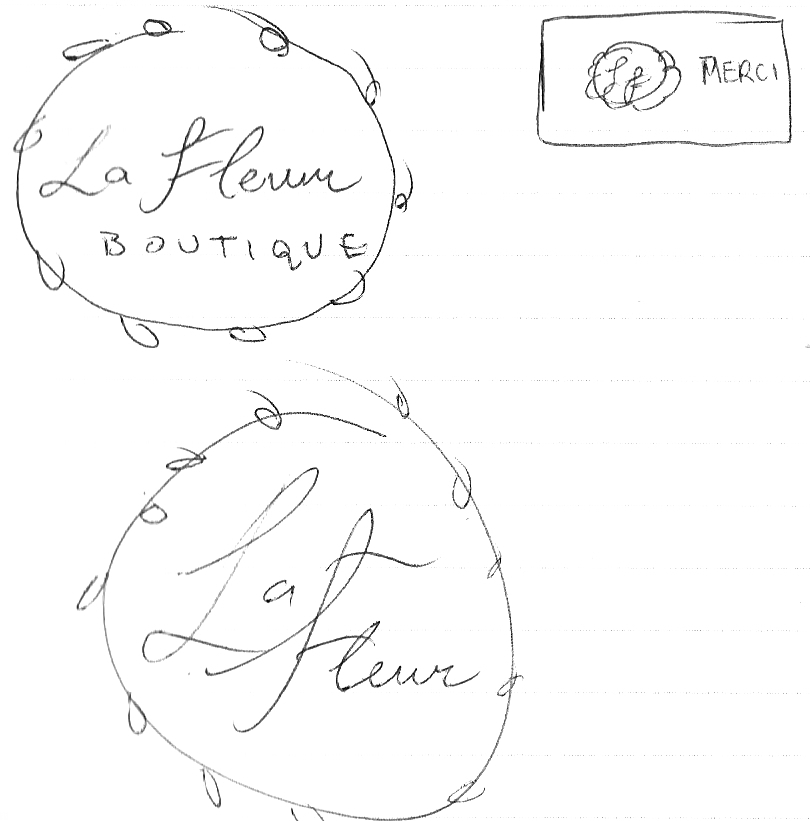 La Fleur
BOUTIQUE
Lf MERCI
La
Fleur